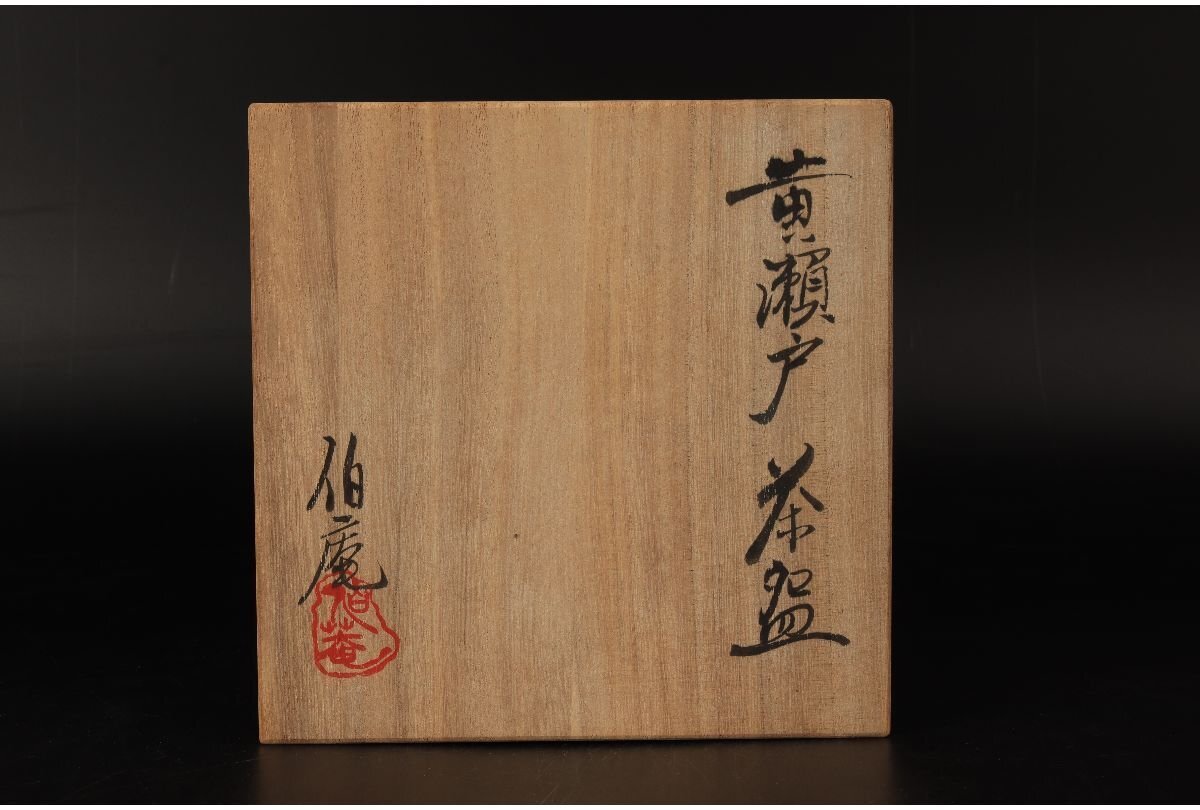 黄瀬戸茶盌
伯庵
伯菴